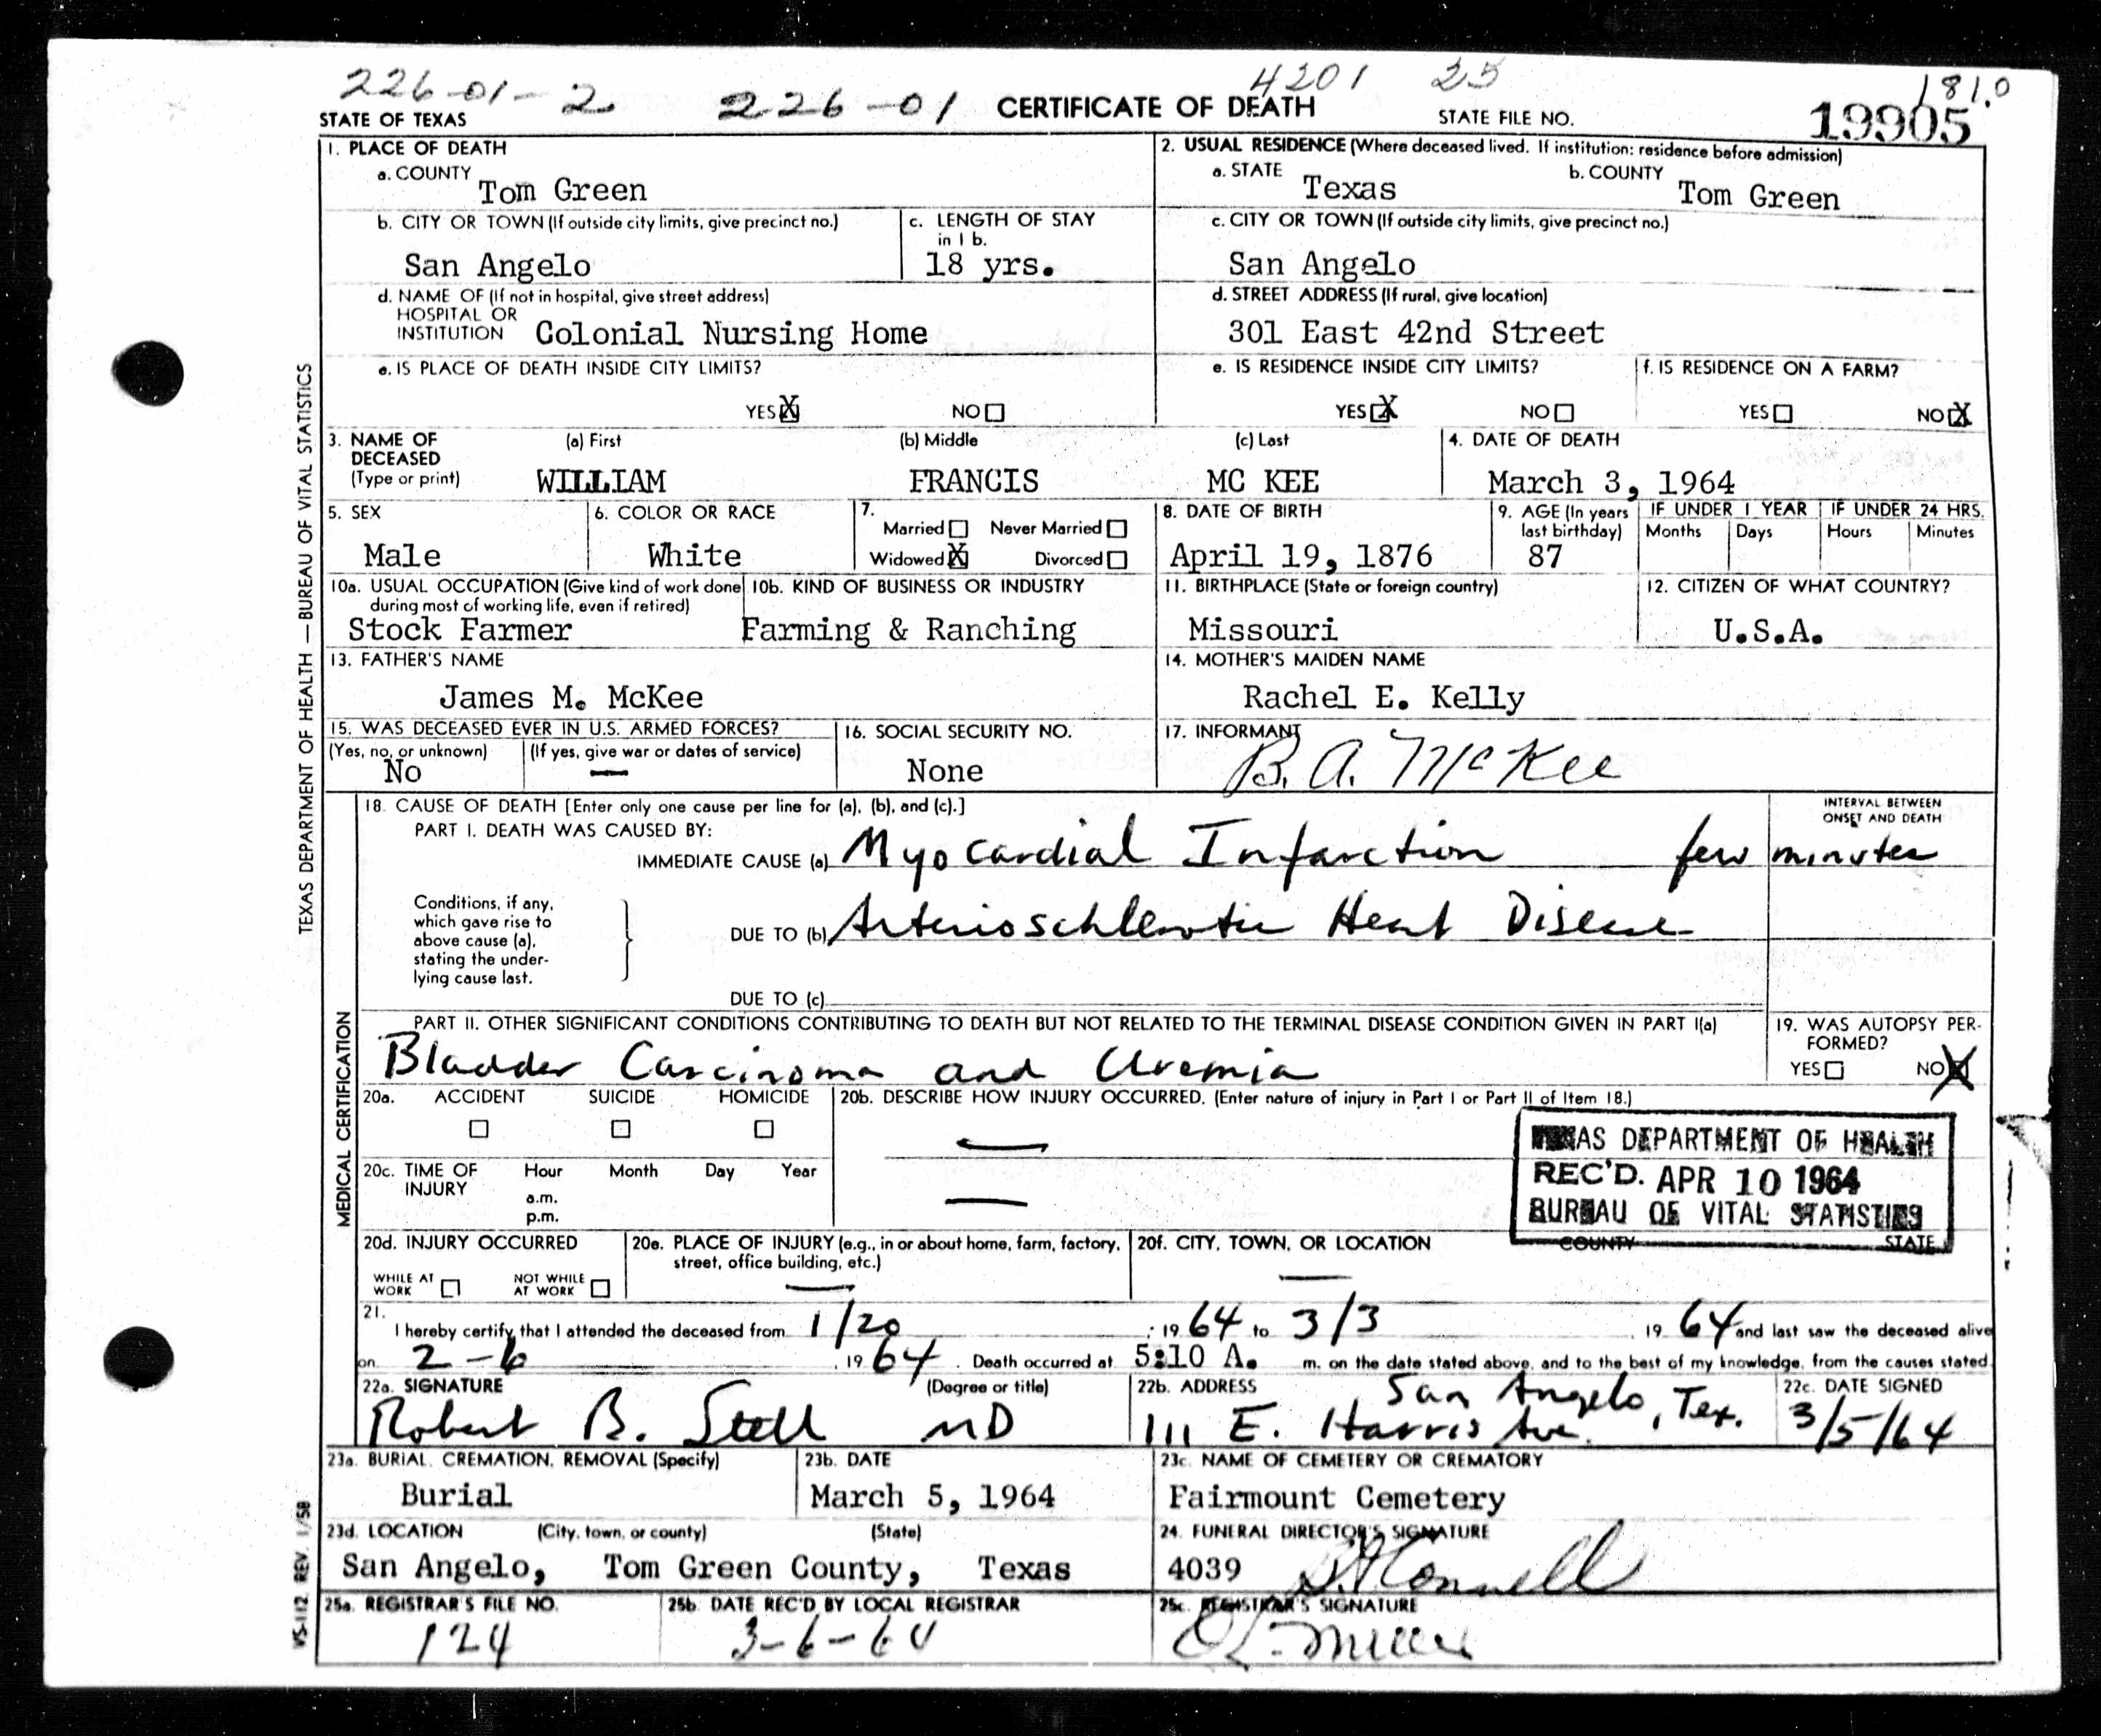 226-01-2 226-01 4201 25 181.0
STATE OF TEXAS CERTIFICATE OF DEATH STATE FILE NO. 19905
TEXAS DEPARTMENT OF HEALTH — BUREAU OF VITAL STATISTICS
1. PLACE OF DEATH
a. COUNTY Tom Green
2. USUAL RESIDENCE (Where deceased lived. If institution: residence before admission)
a. STATE Texas b. COUNTY Tom Green
b. CITY OR TOWN (If outside city limits, give precinct no.) San Angelo
c. LENGTH OF STAY in 1 b. 18 yrs.
c. CITY OR TOWN (If outside city limits, give precinct no.) San Angelo
d. NAME OF (If not in hospital, give street address)
HOSPITAL OR
INSTITUTION Colonial Nursing Home
d. STREET ADDRESS (If rural, give location)
301 East 42nd Street
e. IS PLACE OF DEATH INSIDE CITY LIMITS?
YES X NO
e. IS RESIDENCE INSIDE CITY LIMITS?
YES X NO
f. IS RESIDENCE ON A FARM?
YES NO X
3. NAME OF DECEASED (Type or print)
(a) First WILLIAM (b) Middle FRANCIS (c) Last MC KEE
4. DATE OF DEATH March 3, 1964
5. SEX Male
6. COLOR OR RACE White
7. Married Never Married
Widowed X Divorced
8. DATE OF BIRTH April 19, 1876
9. AGE (In years last birthday) 87
IF UNDER 1 YEAR Months Days
IF UNDER 24 HRS. Hours Minutes
10a. USUAL OCCUPATION (Give kind of work done during most of working life, even if retired) Stock Farmer
10b. KIND OF BUSINESS OR INDUSTRY Farming & Ranching
11. BIRTHPLACE (State or foreign country) Missouri
12. CITIZEN OF WHAT COUNTRY? U.S.A.
13. FATHER'S NAME James M. McKee
14. MOTHER'S MAIDEN NAME Rachel E. Kelly
15. WAS DECEASED EVER IN U.S. ARMED FORCES?
(Yes, no, or unknown) No (If yes, give war or dates of service) —
16. SOCIAL SECURITY NO. None
17. INFORMANT B. A. McKee
MEDICAL CERTIFICATION
18. CAUSE OF DEATH [Enter only one cause per line for (a), (b), and (c).]
INTERVAL BETWEEN ONSET AND DEATH
PART I. DEATH WAS CAUSED BY:
IMMEDIATE CAUSE (a) Myocardial Infarction few minutes
Conditions, if any, which gave rise to above cause (a), stating the underlying cause last.
DUE TO (b) Arterioschlerotic Heart Disease
DUE TO (c)
PART II. OTHER SIGNIFICANT CONDITIONS CONTRIBUTING TO DEATH BUT NOT RELATED TO THE TERMINAL DISEASE CONDITION GIVEN IN PART I(a)
Bladder Carcinoma and Uremia
19. WAS AUTOPSY PERFORMED?
YES NO X
20a. ACCIDENT SUICIDE HOMICIDE
20b. DESCRIBE HOW INJURY OCCURRED. (Enter nature of injury in Part I or Part II of Item 18.) —
20c. TIME OF INJURY Hour Month Day Year
a.m.
p.m.
—
TEXAS DEPARTMENT OF HEALTH
REC'D. APR 10 1964
BUREAU OF VITAL STATISTICS
20d. INJURY OCCURRED
WHILE AT WORK NOT WHILE AT WORK
20e. PLACE OF INJURY (e.g., in or about home, farm, factory, street, office building, etc.) —
20f. CITY, TOWN, OR LOCATION COUNTY STATE
—
21. I hereby certify that I attended the deceased from 1/20, 1964 to 3/3, 1964 and last saw the deceased alive
on 2-6, 1964. Death occurred at 5:10 A. m. on the date stated above, and to the best of my knowledge, from the causes stated.
22a. SIGNATURE (Degree or title) Robert B. Stell MD
22b. ADDRESS San Angelo, Tex.
111 E. Harris Ave.
22c. DATE SIGNED 3/5/64
23a. BURIAL, CREMATION, REMOVAL (Specify) Burial
23b. DATE March 5, 1964
23c. NAME OF CEMETERY OR CREMATORY Fairmount Cemetery
23d. LOCATION (City, town, or county) (State)
San Angelo, Tom Green County, Texas
24. FUNERAL DIRECTOR'S SIGNATURE
4039
25a. REGISTRAR'S FILE NO. 124
25b. DATE REC'D BY LOCAL REGISTRAR 3-6-64
25c. REGISTRAR'S SIGNATURE
Miller
VS-112 REV. 1/58